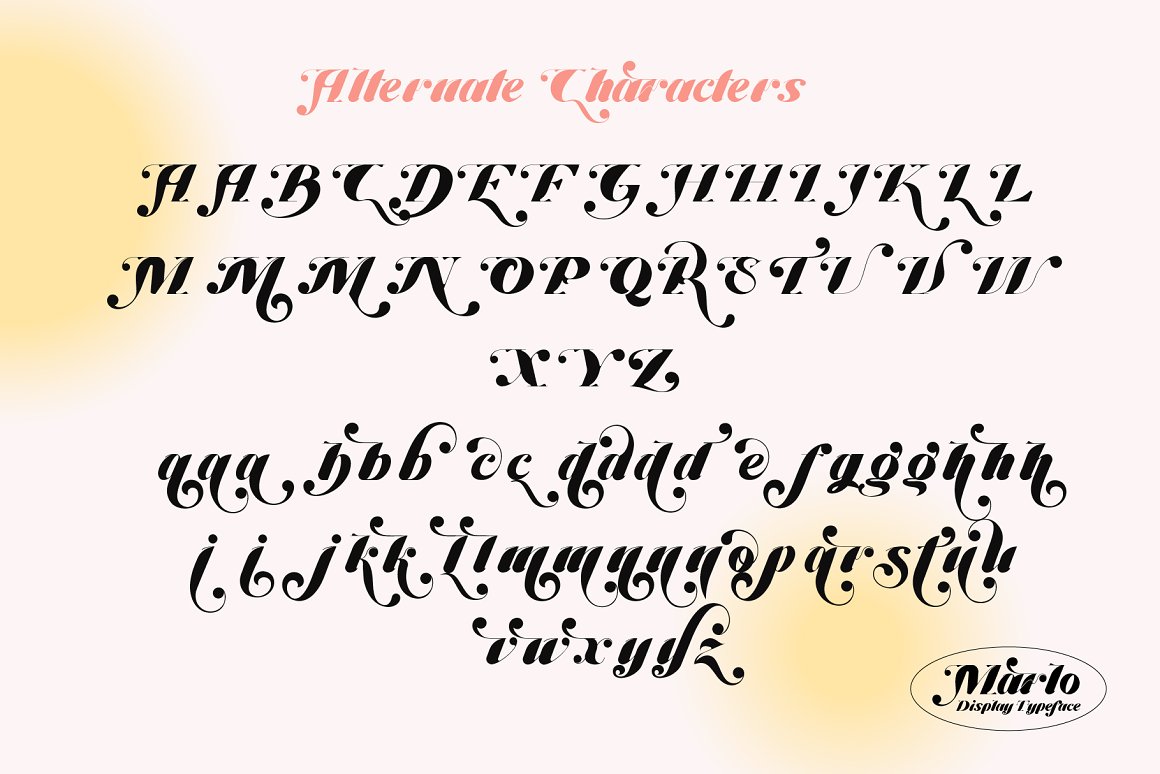 Alternate Characters
A A B C D E F G H H I J K L L
M M M N O P Q R S T U V W
X Y Z
a a a b b b c c d d d d e f g g g h h h
i i j k k l l m m n n n o p a r s t u u
v w x y y z
Marlo
Display Typeface